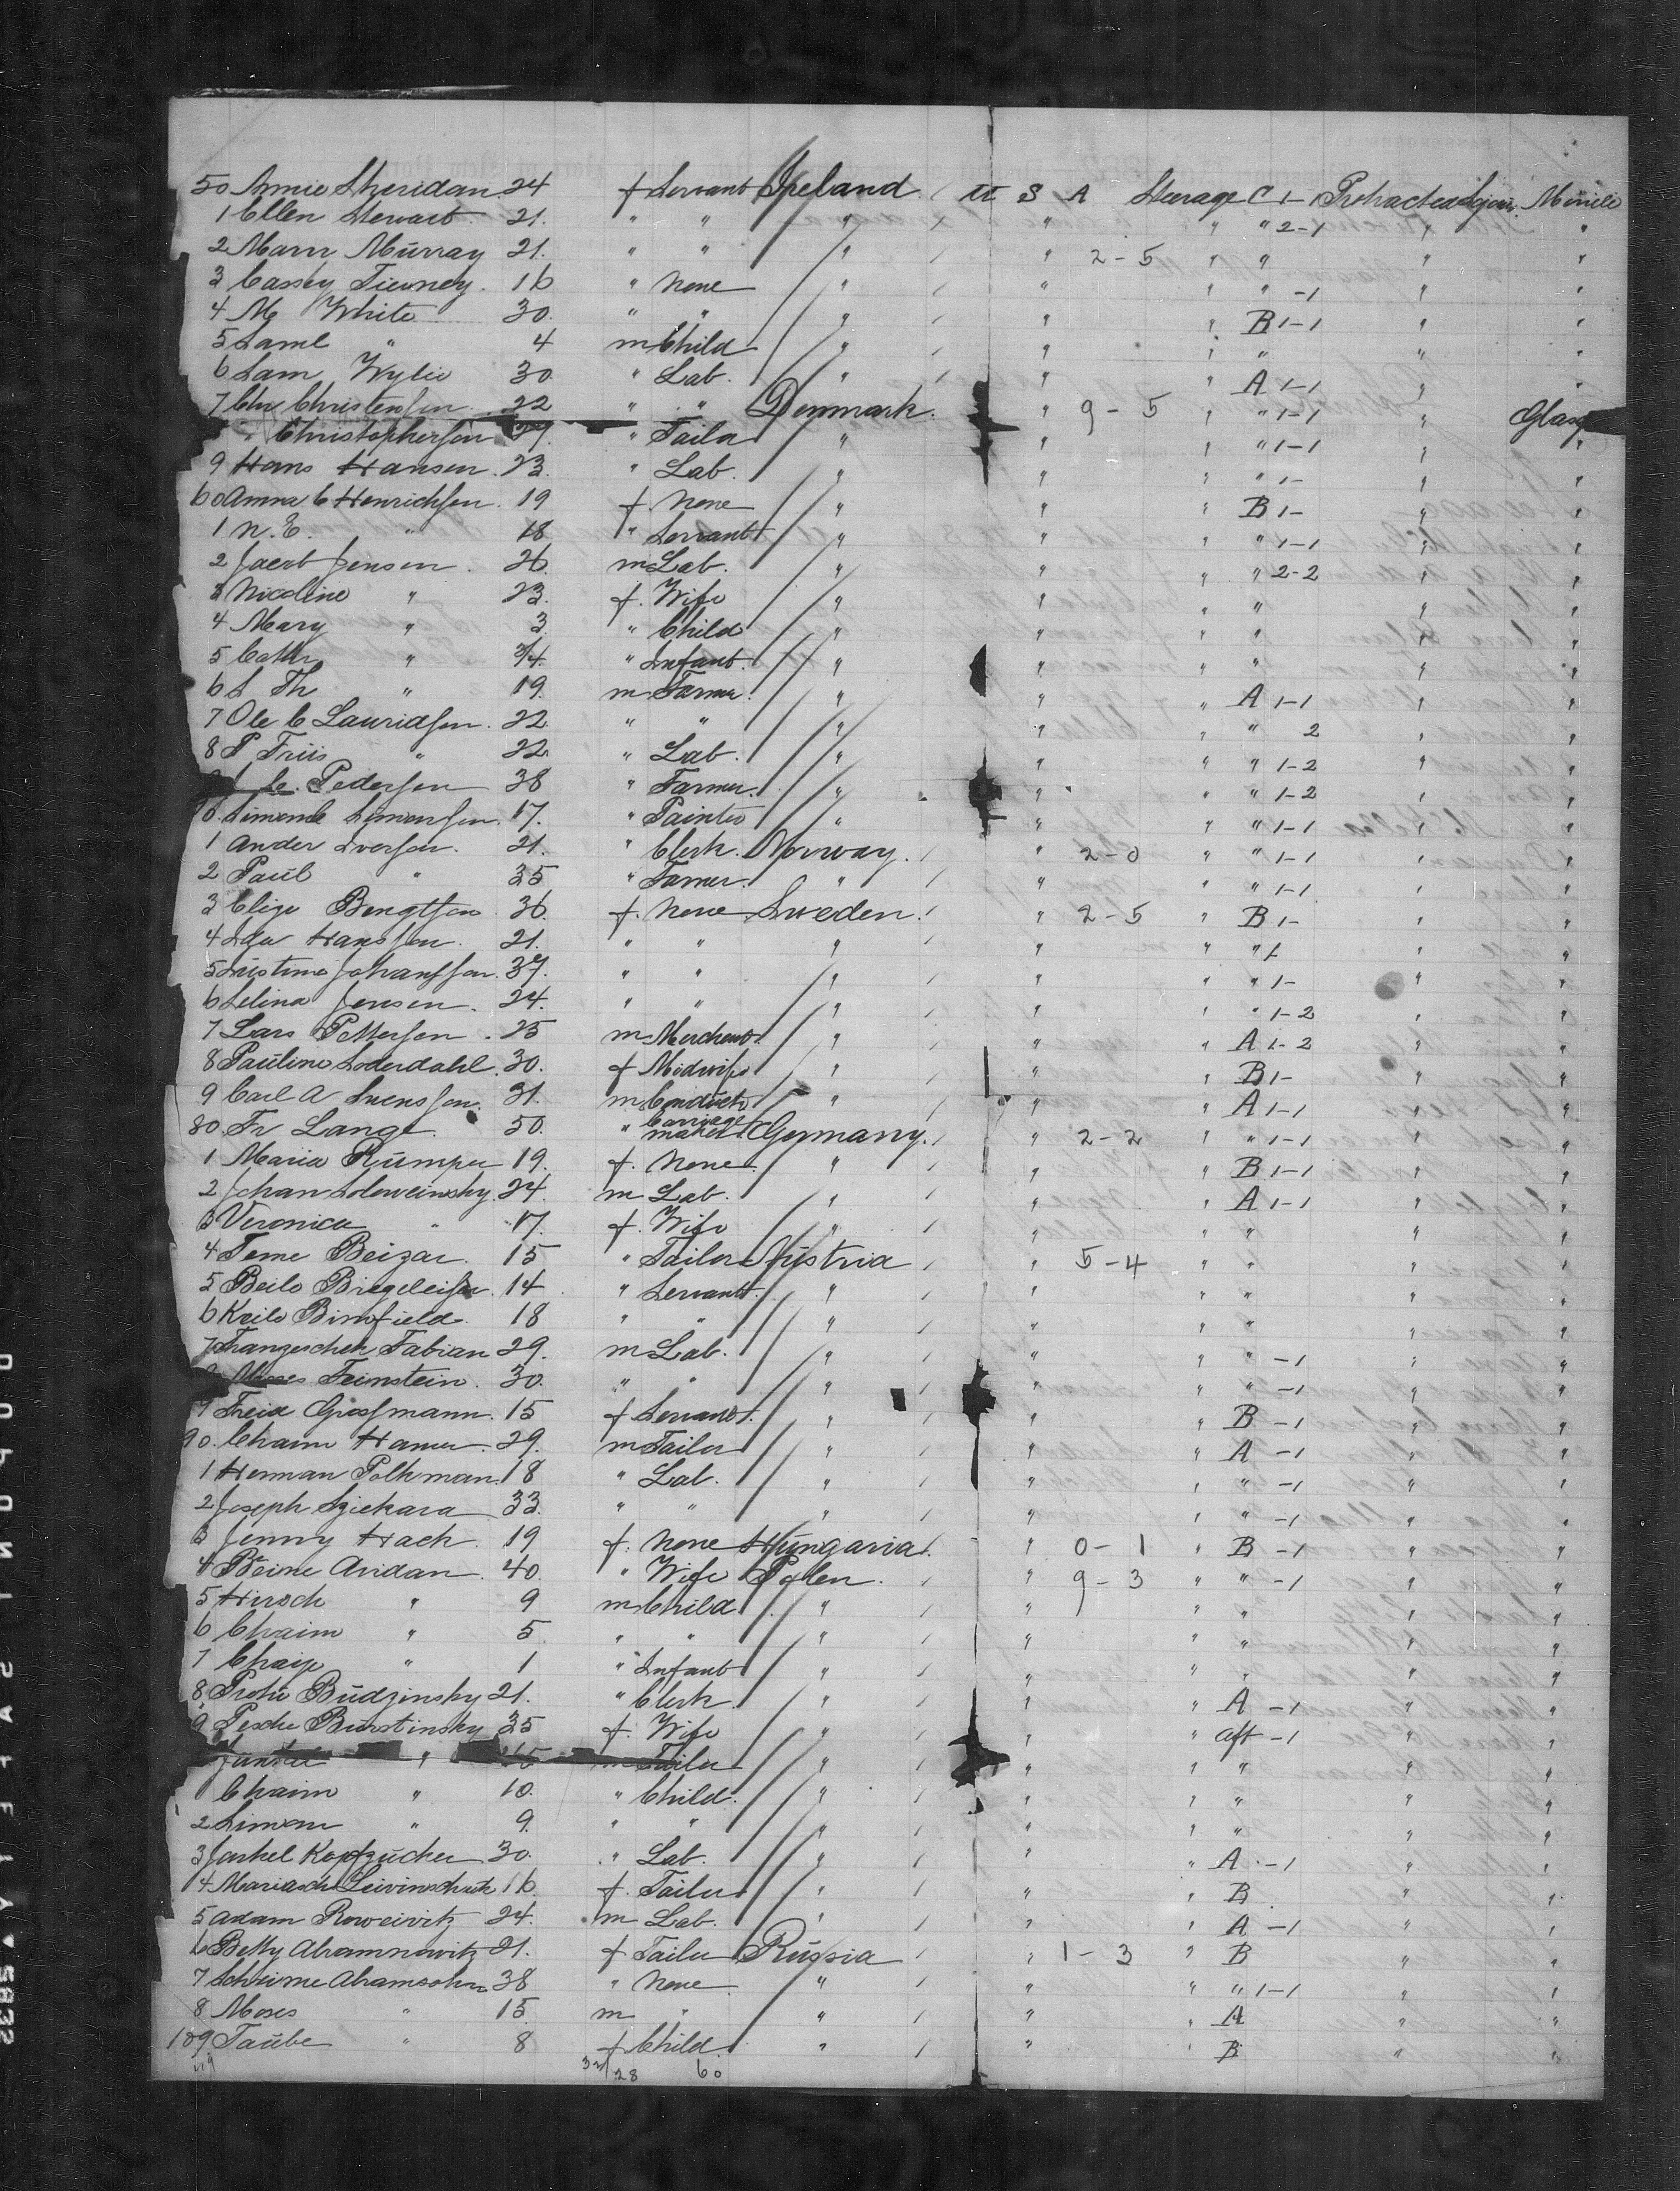 50 Annie Sheridan 24 f Servant Ireland / U S A Steerage C 1- Protracted Sejour Moville
1 Ellen Stewart 21. " " " " " " 2-1 " "
2 Mary Murray 21. " " " / " 2-5 " " " "
3 Cassey Tierney. 16 " None " / " " " -1 " "
4 M White 30. " " " / " " B 1-1 " "
5 Saml " 4 m Child " / " " " " "
6 Sam Wylie 30 " Lab. " / " " A 1-1 " "
7 Chr Christensen 22 " " Denmark. " 9-5 " " 1-1 " Glasg
" Christophersen 29. " Tailor " " " " 1-1 " "
9 Hans Hansen. 23. " Lab. " " " " 1- " "
60 Anna C Henrichsen. 19 f. None " " " B 1- " "
1 N. E. " 18 " Servant " " " " 1-1 " "
2 Jacob Jensen. 26. m Lab. " " " " 2-2 " "
3 Nicoline " 23. f. Wife " " " " " "
4 Mary " 3 " Child " " " " " "
5 Cath " 3/4. " Infant. " " " " " "
6 S Th " 19. m Farmer. " " " A 1-1 " "
7 Ole C Lauridsen. 22. " " " " " " 2 " "
8 P Friis " 22. " Lab. " " " " 1-2 " "
C. Pedersen 38 " Farmer. " " " " 1-2 " "
70. Simensen. 17. " Painter " " " " 1-1 " "
1 Ander Iversen. 21. " Clerk. Norway. / " 2-0 " " 1-1 " "
2 Paul " 35 " Farmer. " / " " " 1-1 " "
3 Elise Bengtson 36. f. None Sweden. / " 2-5 " B 1- " "
4 Ida Hansson. 21. " " " / " " " 1 " "
5 Johansson. 37. " " " / " " " 1- " "
6 Selina Jensen. 24. " " " / " " " 1-2 " "
7 Lars Pettersen. 25 m Merchant. " / " " A 1-2 " "
8 Pauline Soderdahl. 30. f Midwife " / " " B 1- " "
9 Carl A Svensson. 31. m Conductor " / " " A 1-1 " "
80. Fr Lange. 50. " Carriage maker Germany. / " 2-2 " " 1-1 " "
1 Maria Rumper 19. f. None " / " " B 1-1 " "
2 Johan Soloweinsky. 24. m Lab. " / " " A 1-1 " "
3 Veronica " 17. f. Wife " / " " " " "
4 Teme Beizar. 15 " Tailor Austria / " 5-4 " " " "
5 Beile Biegeleisen. 14 " Servant. " / " " " " "
6 Kreile Birnfield. 18 " " " / " " " " "
7 Franzeschek Fabian 29. m Lab. " / " " " -1 " "
Moses Feinstein. 30. " " " / " " " -1 " "
9 Freia Grossmann. 15 f Servant. " / " " B -1 " "
90. Chaim Hamer. 29. m Tailor " / " " A -1 " "
1 Herman Polkman. 18 " Lab. " / " " " -1 " "
2 Joseph Sziekara 33. " " " / " " " -1 " "
3 Jenny Hach 19 f. None Hungaria. / " 0-1 " B -1 " "
4 Beine Aridan. 40. " Wife Polen. / " 9-3 " " -1 " "
5 Hirsch " 9 m Child " / " " " " "
6 Chaim " 5. " " " / " " " " "
7 Chaje " 1 " Infant " / " " " " "
8 Budzinsky 21. " Clerk " / " " A -1 " "
9 Pesche Burstinsky 35 f. Wife " / " " aft -1 " "
" Tailor " / " " " " "
1 Chaim " 10. " Child. " / " " " " "
2 Simon " 9. " " " / " " " " "
3 Jankel Kopfzucker 30. " Lab. " / " " A -1 " "
4 Mariasch 16. f. Tailor " / " " B " "
5 Adam Roweivitz 24. m Lab. " / " " A -1 " "
6 Betty Abramnowitz 21. f Tailor Russia / " 1-3 " B " "
7 Abramsohn 38 " None " / " " " 1-1 " "
8 Moses " 15. m " " / " " A " "
109 Taube " 8 f Child " / " " B " "
32/28 60